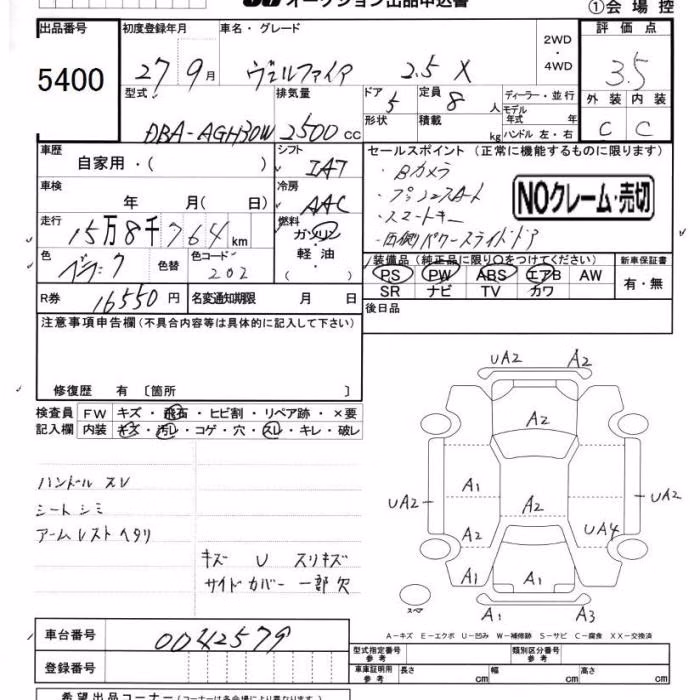 オークション出品申込書
①会場控
出品番号
5400
初度登録年月
27 9月
車名・グレード
ヴェルファイア 2.5 X
2WD
・
4WD
評価点
3.5
外装 内装
C C
型式
DBA-AGH30W
排気量
2500 cc
ドア
5
定員
8 人
形状
積載
kg
ディーラー・並行
モデル
年式 年
ハンドル 左・右
車歴
自家用・( )
シフト
IAT
セールスポイント (正常に機能するものに限ります)
・Bカメラ
・プッシュスタート
・スマートキー
・両側パワースライドドア
NOクレーム・売切
車検
年 月( 日)
冷房
AAC
走行
15万8千764km
燃料
ガソリン
・
軽油
色
ブラック
色替
色コード
202
装備品(純正品に限り○をつけてください)
PS PW ABS エアB AW
SR ナビ TV カワ
新車保証書
有・無
R券
16550円
名変通知期限 月 日
後日品
注意事項申告欄(不具合内容等は具体的に記入して下さい)
修復歴 有 〔箇所 〕
検査員
記入欄
FW キズ・飛石・ヒビ割・リペア跡・×要
内装 キズ・汚レ・コゲ・穴・スレ・キレ・破レ
ハンドル スレ
シート シミ
アームレスト ヘタリ
キズ U スリキズ
サイドカバー 一部欠
UA2 A2
A2
A1
UA2
A2
UA2
A2
UA4
A1
A1
スペア
A1 A3
A-キズ E-エクボ U-凹み W-補修跡 S-サビ C-腐食 XX-交換済
車台番号
0042579
登録番号
型式指定番号
参考
類別区分番号
参考
車庫証明用
参考
長さ cm 幅 cm 高さ cm
希望出品コーナー